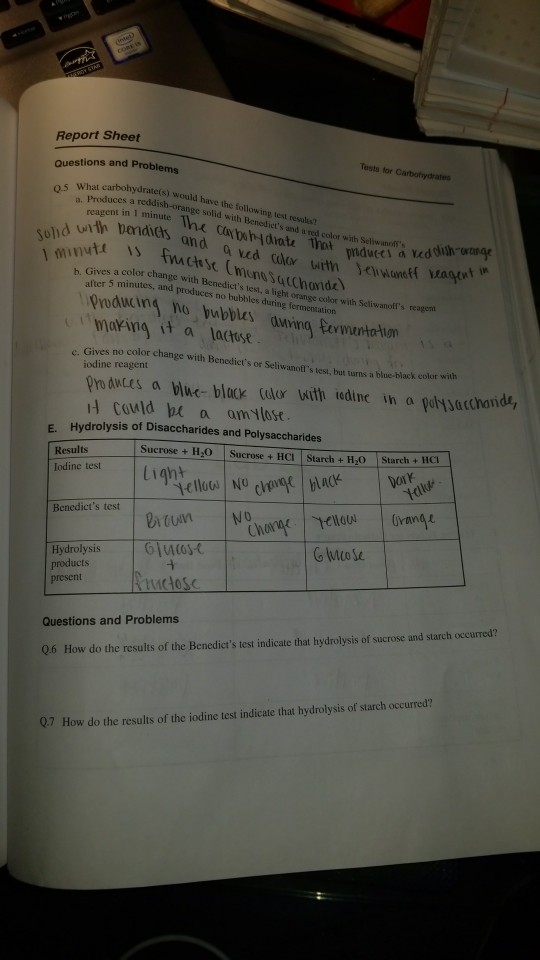 PgDn
intel
CORE i5
ENERGY STAR
Report Sheet
Tests for Carbohydrates
Questions and Problems
Q.5 What carbohydrate(s) would have the following test results?
a. Produces a reddish-orange solid with Benedict's and a red color with Seliwanoff's
reagent in 1 minute The carbohydrate that produces a reddish-orange
solid with benidicts and a red color with Seliwanoff reagent in
1 minute is fructose (monosaccharide)
b. Gives a color change with Benedict's test, a light orange color with Seliwanoff's reagent
after 5 minutes, and produces no bubbles during fermentation
Producing no bubbles during fermentation
making it a lactose.
c. Gives no color change with Benedict's or Seliwanoff's test, but turns a blue-black color with
iodine reagent
Produces a blue-black color with iodine in a polysaccharide,
it could be a amylose.
E. Hydrolysis of Disaccharides and Polysaccharides
Results Sucrose + H2O Sucrose + HCl Starch + H2O Starch + HCl
Iodine test Light Yellow No change black Dark Yellow
Benedict's test Brown No Change. Yellow Orange
Hydrolysis products present Glucose + fructose Glucose
Questions and Problems
Q.6 How do the results of the Benedict's test indicate that hydrolysis of sucrose and starch occurred?
Q.7 How do the results of the iodine test indicate that hydrolysis of starch occurred?